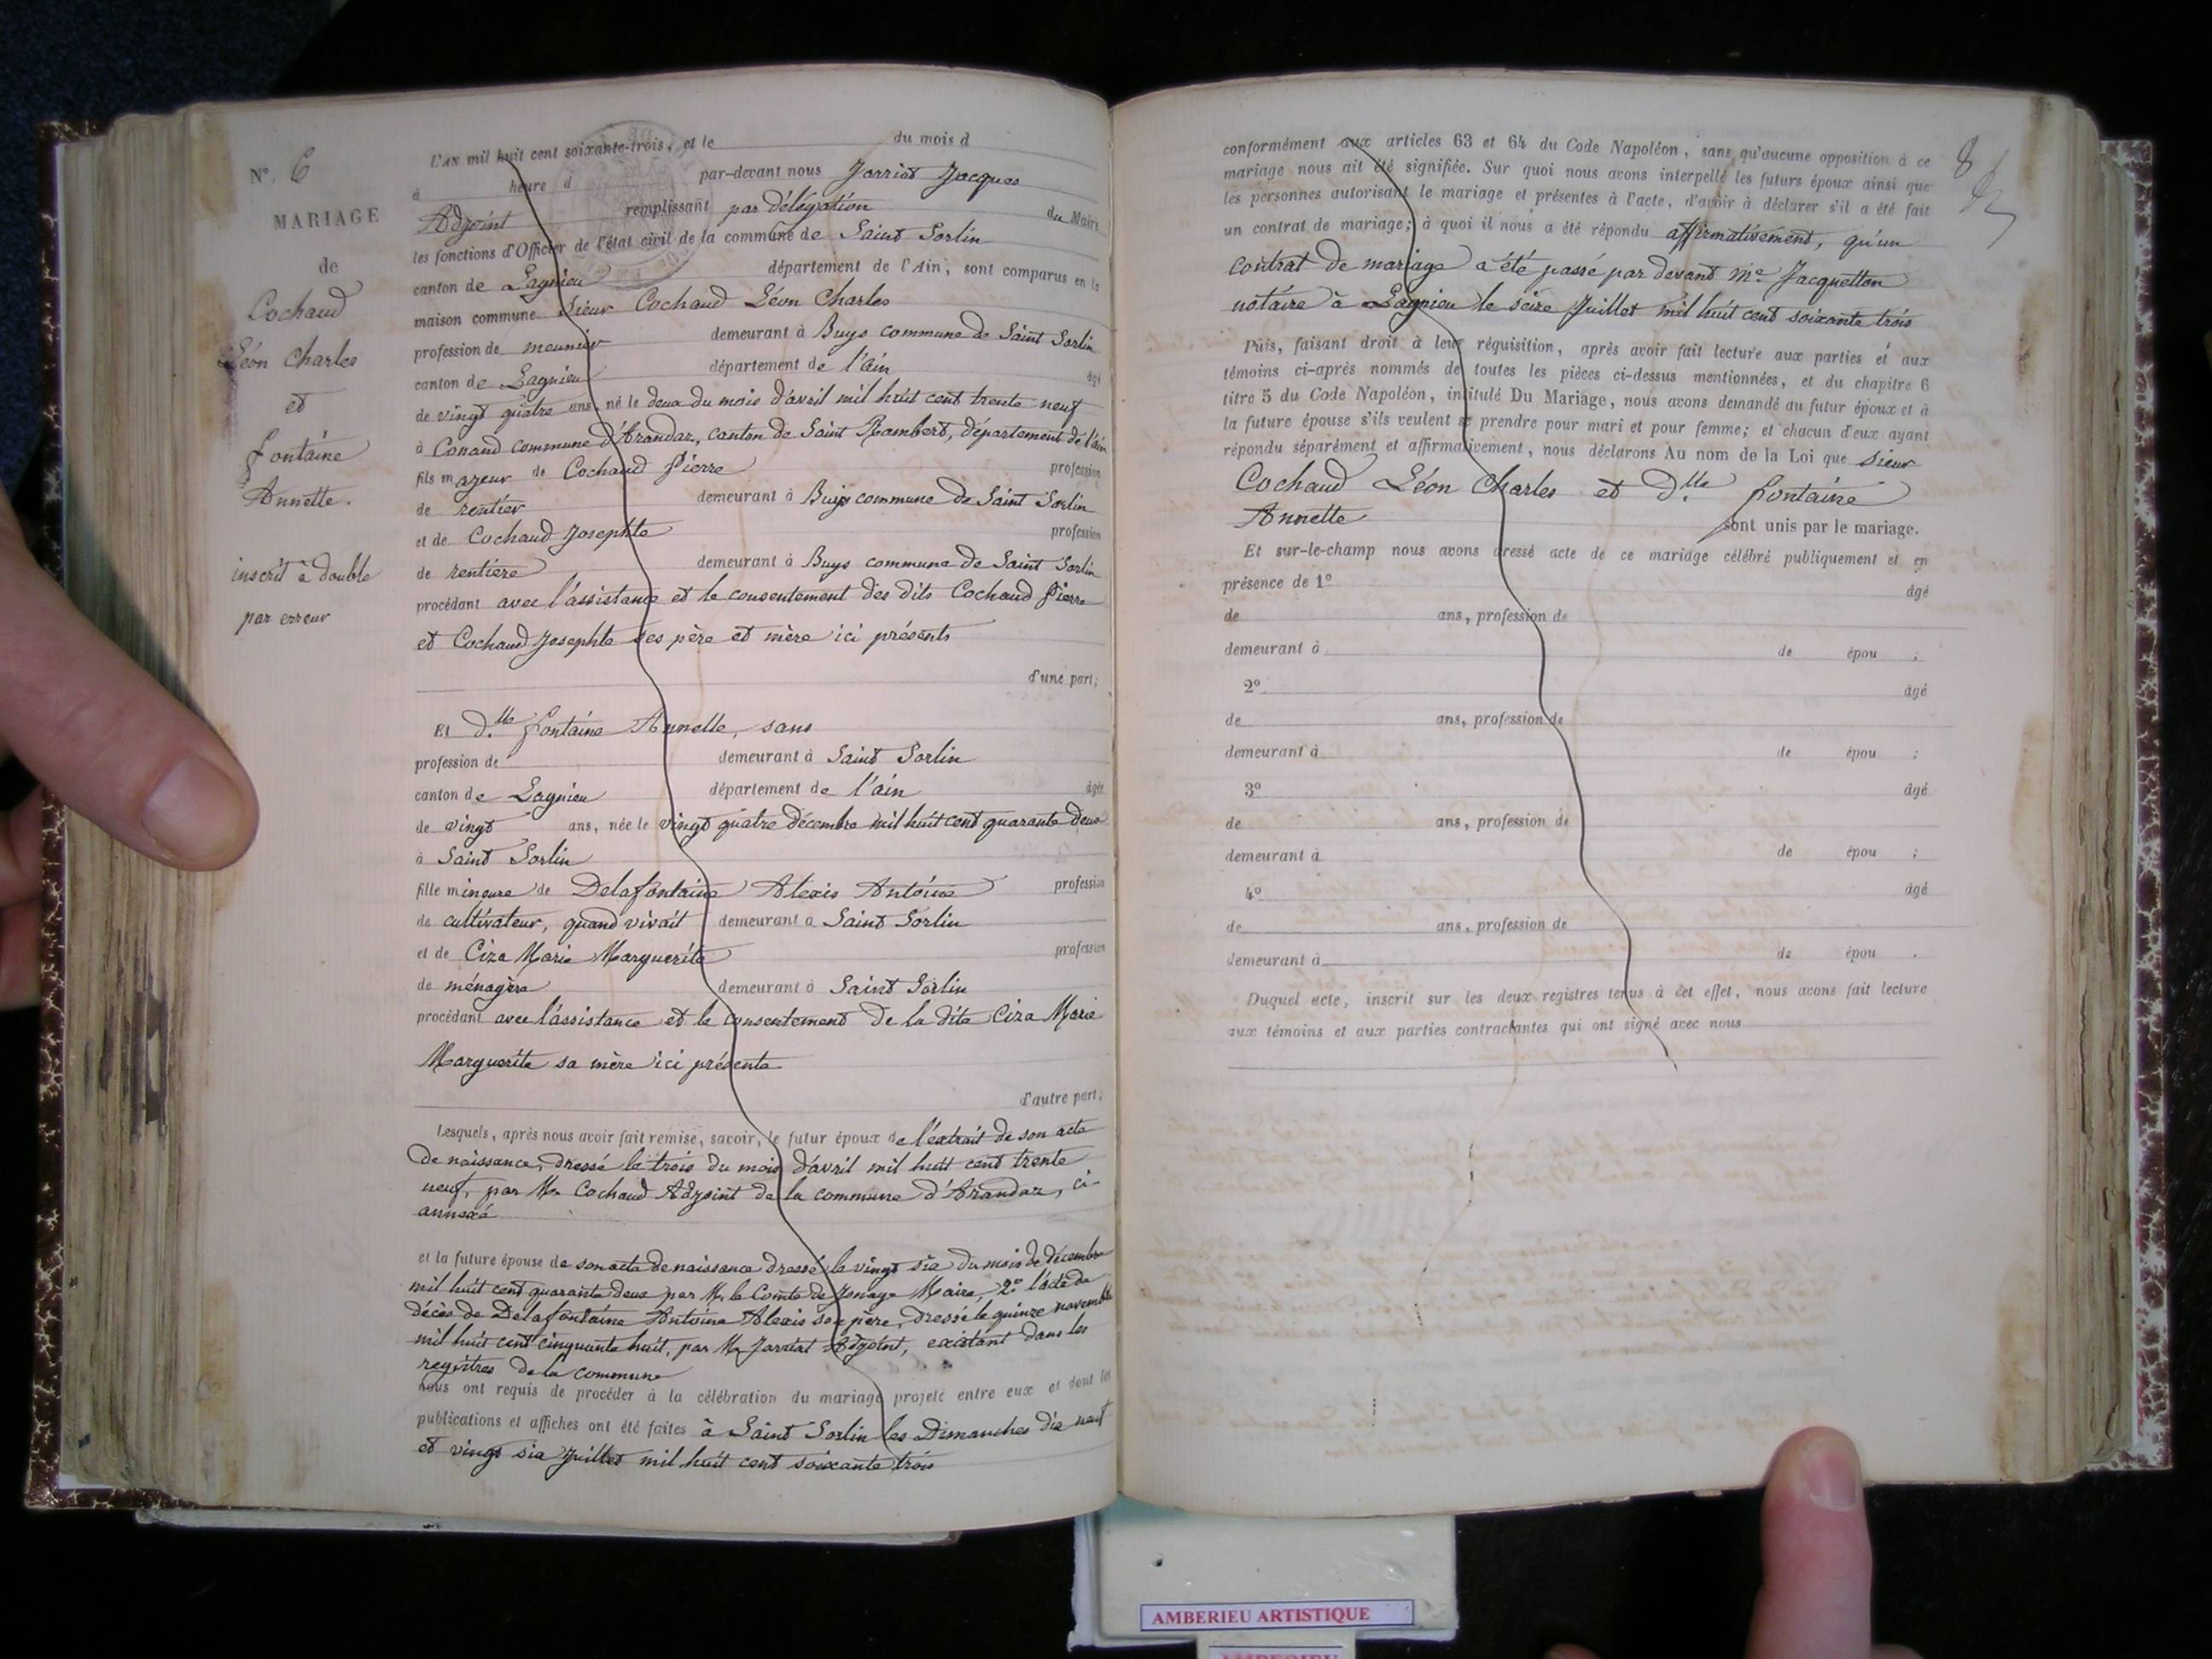 N° 6
MARIAGE
de
Cochaud
Léon Charles
et
Fontaine
Annette.
inscrit à double
par erreur
L'AN mil huit cent soixante-trois, et le du mois d
à heure d par-devant nous Jarriat Jacques
Adjoint remplissant par délégation du Maire
les fonctions d'Officier de l'état civil de la commune de Saint Sorlin
canton de Lagnieu département de l'Ain, sont comparus en la
maison commune Sieur Cochaud Léon Charles
profession de meunier demeurant à Buys commune de Saint Sorlin
canton de Lagnieu département de l'ain âgé
de vingt quatre ans, né le deux du mois d'avril mil huit cent trente neuf
à Conand commune d'Arandaz, canton de Saint Rambert, département de l'ain
fils majeur de Cochaud Pierre profession
de rentier demeurant à Buys commune de Saint Sorlin
et de Cochaud Josephte profession
de rentière demeurant à Buys commune de Saint Sorlin
procédant avec l'assistance et le consentement des dits Cochaud Pierre
et Cochaud Josephte ses père et mère ici présents
d'une part;
Et d.lle Fontaine Annette, sans
profession de demeurant à Saint Sorlin
canton de Lagnieu département de l'ain âgée
de vingt ans, née le vingt quatre décembre mil huit cent quarante deux
à Saint Sorlin
fille mineure de Delafontaine Alexis Antoine profession
de cultivateur, quand vivait demeurant à Saint Sorlin
et de Ciza Marie Marguerite profession
de ménagère demeurant à Saint Sorlin
procédant avec l'assistance et le consentement de la dite Ciza Marie
Marguerite sa mère ici présente
d'autre part;
Lesquels, après nous avoir fait remise, savoir, le futur époux de l'extrait de son acte
de naissance, dressé le trois du mois d'avril mil huit cent trente
neuf, par Mr Cochaud Adjoint de la commune d'Arandaz, ci-
annexé
et la future épouse de son acte de naissance dressé le vingt six du mois de décembre
mil huit cent quarante deux par M. le Comte de Jonage Maire, 2° l'acte de
décès de Delafontaine Antoine Alexis son père, dressé le quinze novembre
mil huit cent cinquante huit, par Mr Jarriat Adjoint, existant dans les
registres de la commune
nous ont requis de procéder à la célébration du mariage projeté entre eux et dont les
publications et affiches ont été faites à Saint Sorlin les Dimanches dix neuf
et vingt six Juillet mil huit cent soixante trois
8
conformément aux articles 63 et 64 du Code Napoléon, sans qu'aucune opposition à ce
mariage nous ait été signifiée. Sur quoi nous avons interpellé les futurs époux ainsi que
les personnes autorisant le mariage et présentes à l'acte, d'avoir à déclarer s'il a été fait
un contrat de mariage; à quoi il nous a été répondu affirmativement, qu'un
contrat de mariage a été passé par devant Me Jacquetton
notaire à Lagnieu le seize Juillet mil huit cent soixante trois
Puis, faisant droit à leur réquisition, après avoir fait lecture aux parties et aux
témoins ci-après nommés de toutes les pièces ci-dessus mentionnées, et du chapitre 6
titre 5 du Code Napoléon, intitulé Du Mariage, nous avons demandé au futur époux et à
la future épouse s'ils veulent se prendre pour mari et pour femme; et chacun d'eux ayant
répondu séparément et affirmativement, nous déclarons Au nom de la Loi que Sieur
Cochaud Léon Charles et D.lle Fontaine
Annette sont unis par le mariage.
Et sur-le-champ nous avons dressé acte de ce mariage célébré publiquement et en
présence de 1° âgé
de ans, profession de
demeurant à de épou ;
2° âgé
de ans, profession de
demeurant à de épou ;
3° âgé
de ans, profession de
demeurant à de épou ;
4° âgé
de ans, profession de
demeurant à de épou .
Duquel acte, inscrit sur les deux registres tenus à cet effet, nous avons fait lecture
aux témoins et aux parties contractantes qui ont signé avec nous
AMBERIEU ARTISTIQUE
AMBERIEU